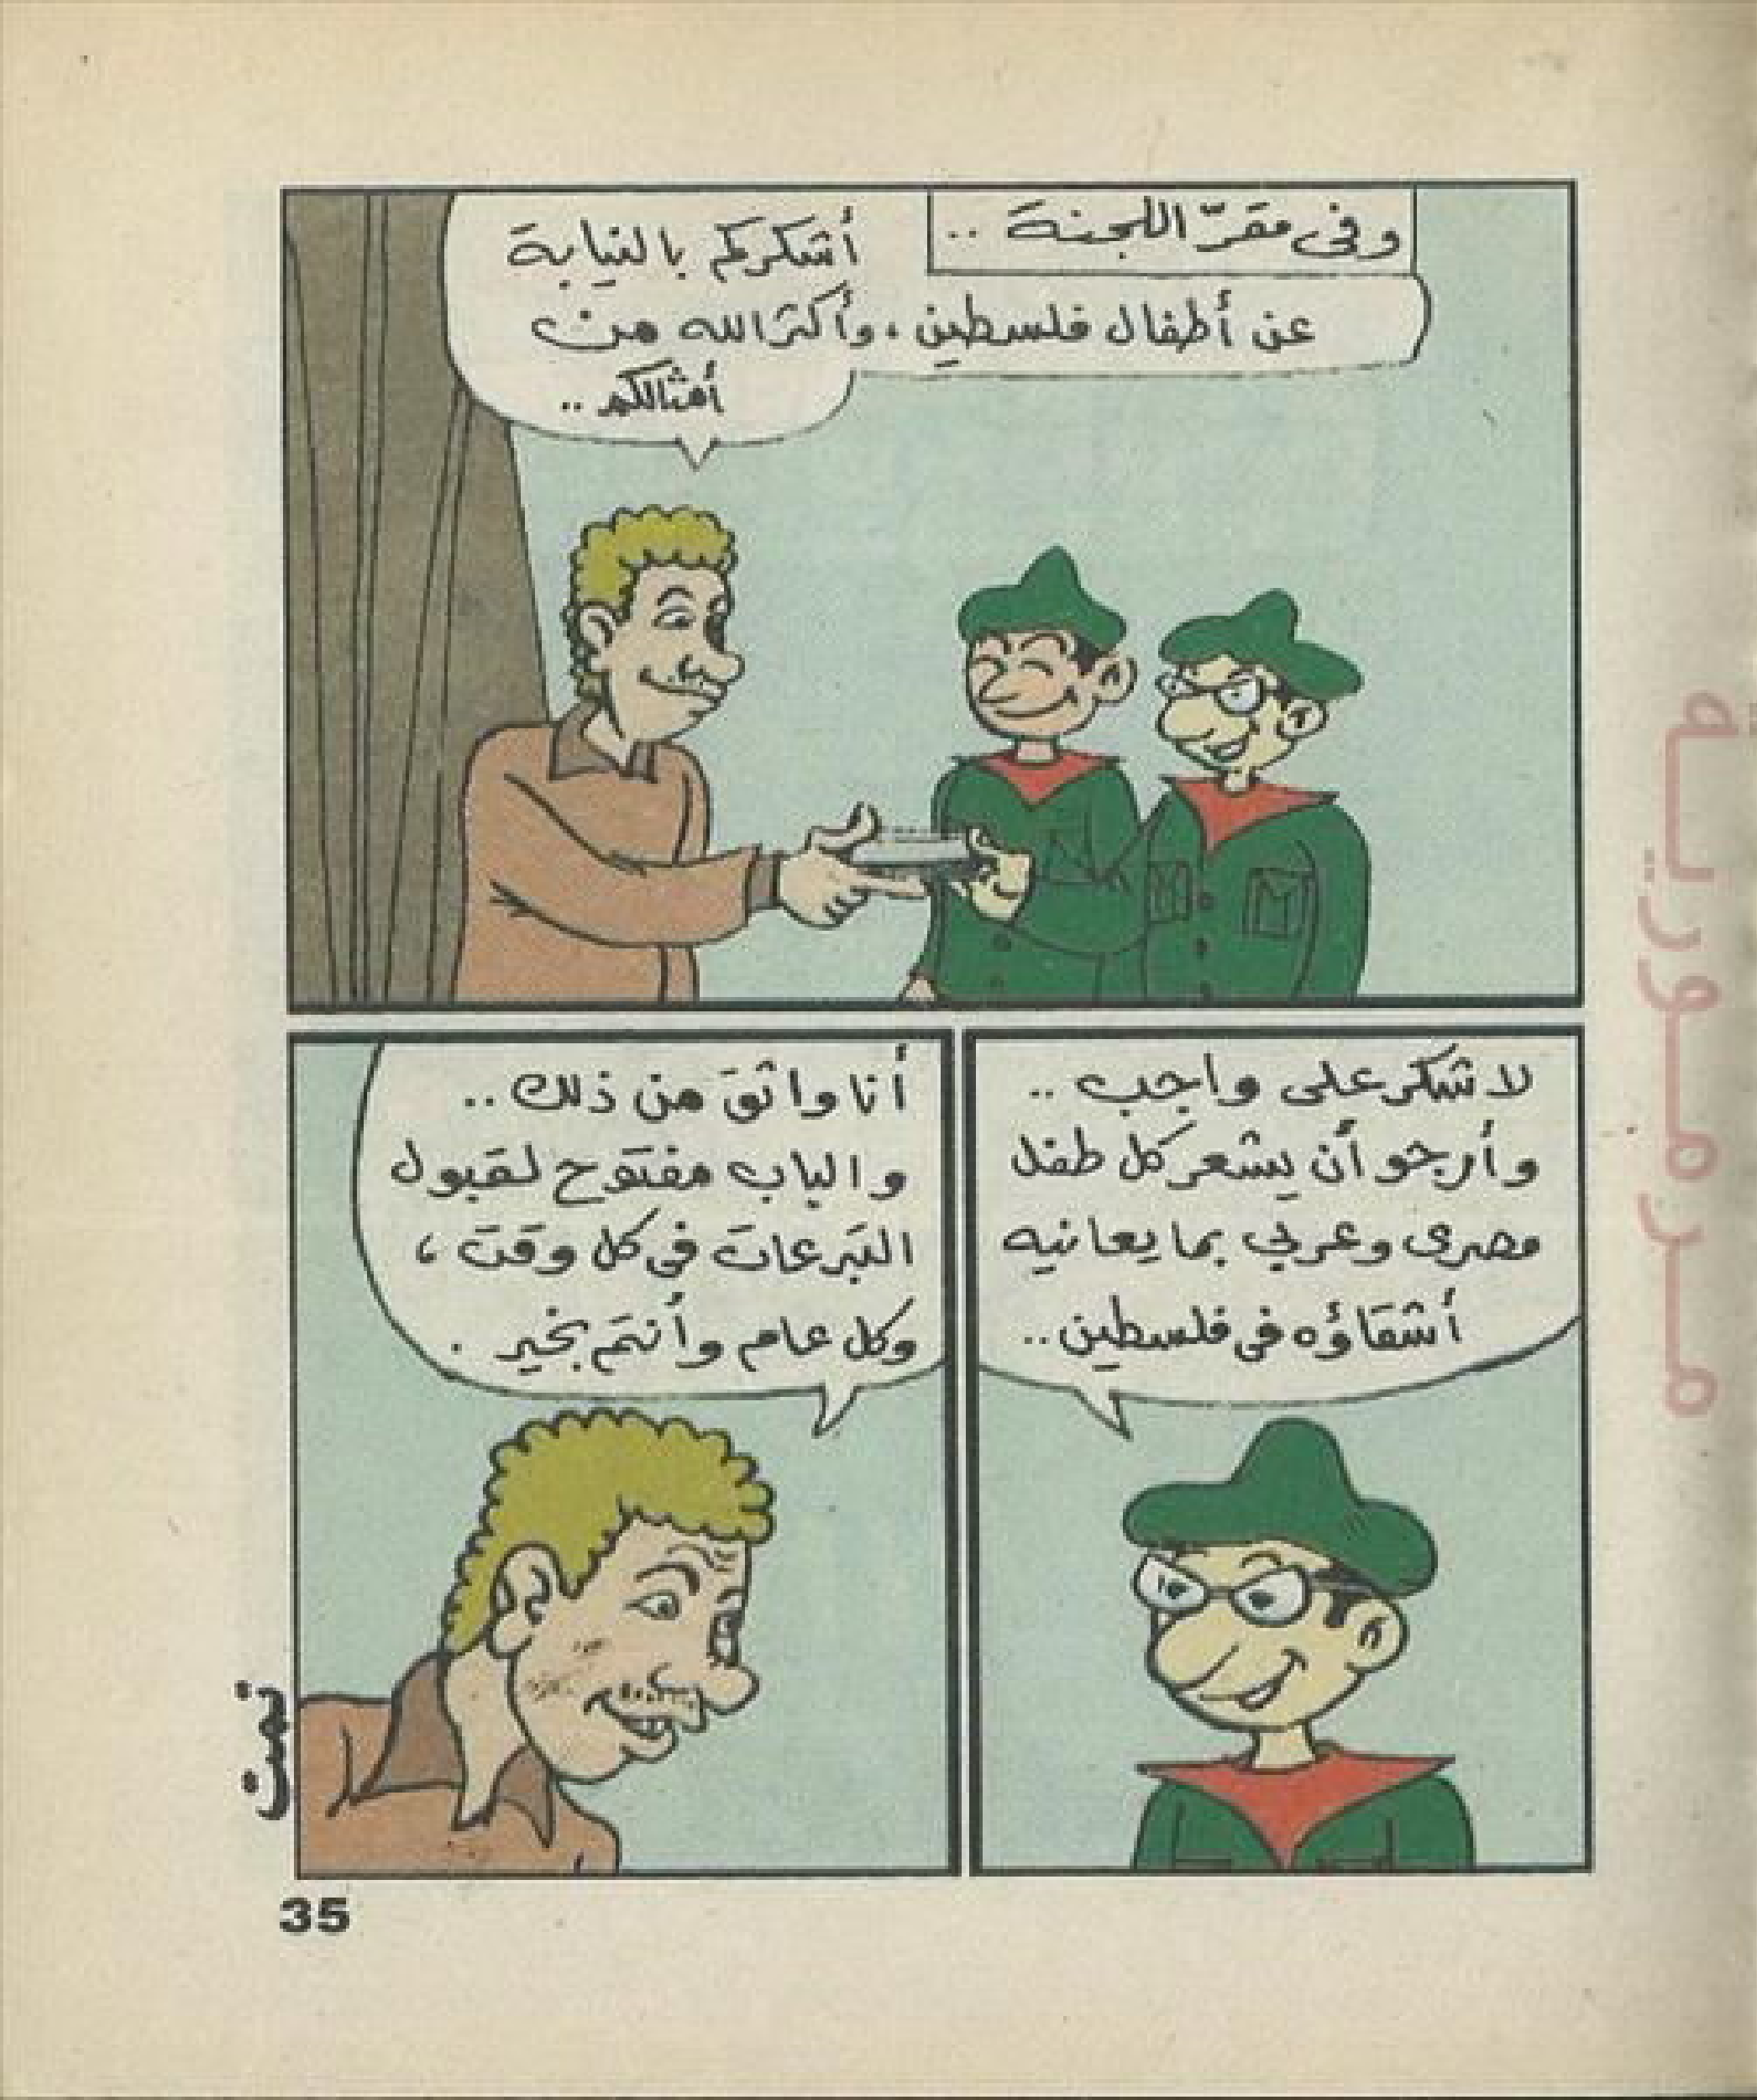 وفى مقرّ اللجنة ..
أشكركم بالنيابة
عن أطفال فلسطين ، وأكثر الله من
أمثالكم ..
لا شكر على واجب ..
وأرجو أن يشعر كل طفل
مصرى وعربي بما يعانيه
أشقاؤه فى فلسطين ..
أنا واثق من ذلك ..
والباب مفتوح لقبول
التبرعات فى كل وقت ،
وكل عام وأنتم بخير .
تمت
35
مرمورية